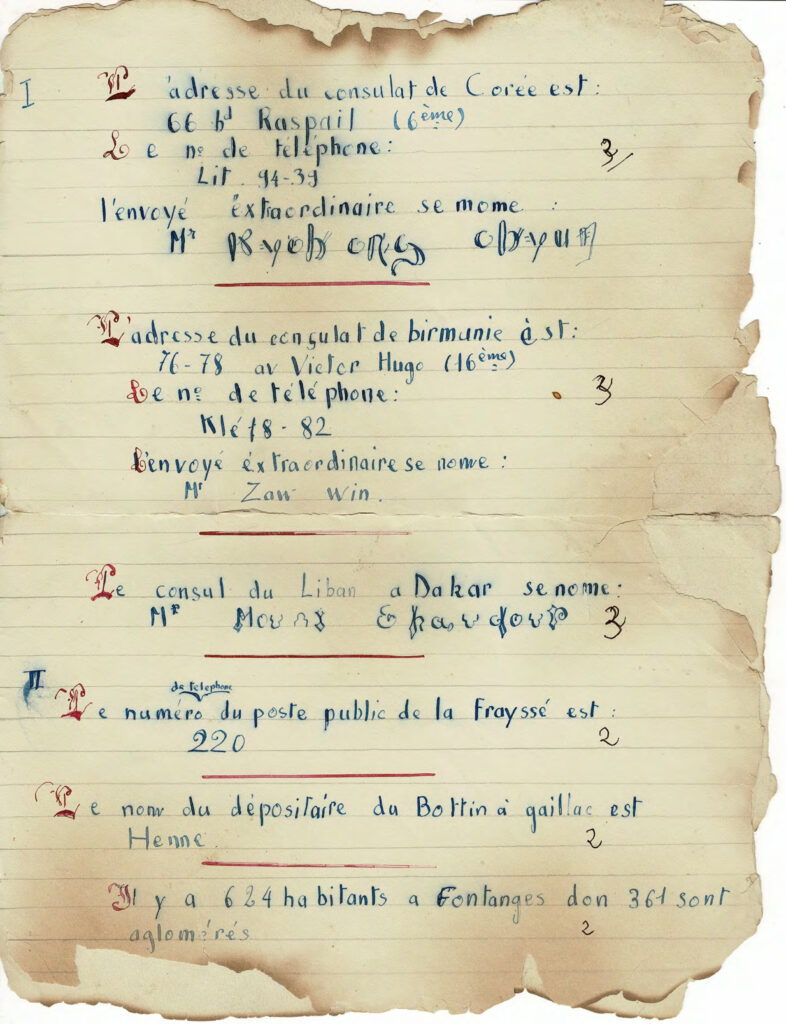 I
L'adresse du consulat de Corée est :
66 bd Raspail (6ème)
Le n° de téléphone :
3
Lit. 94-39
l'envoyé éxtraordinaire se mome :
Mr
L'adresse du consulat de birmanie est :
76-78 av Victor Hugo (16ème)
Le n° de téléphone :
3
Klé 78-82
L'envoyé éxtraordinaire se nome :
Mr Zaw win.
Le consul du Liban a Dakar se nome :
Mr
3
II
de telephone
Le numéro du poste public de la Frayssé est :
220
2
Le nom du dépositaire du Bottin à gaillac est
Henne
2
Il y a 624 habitants a Fontanges don 361 sont
aglomérés
2